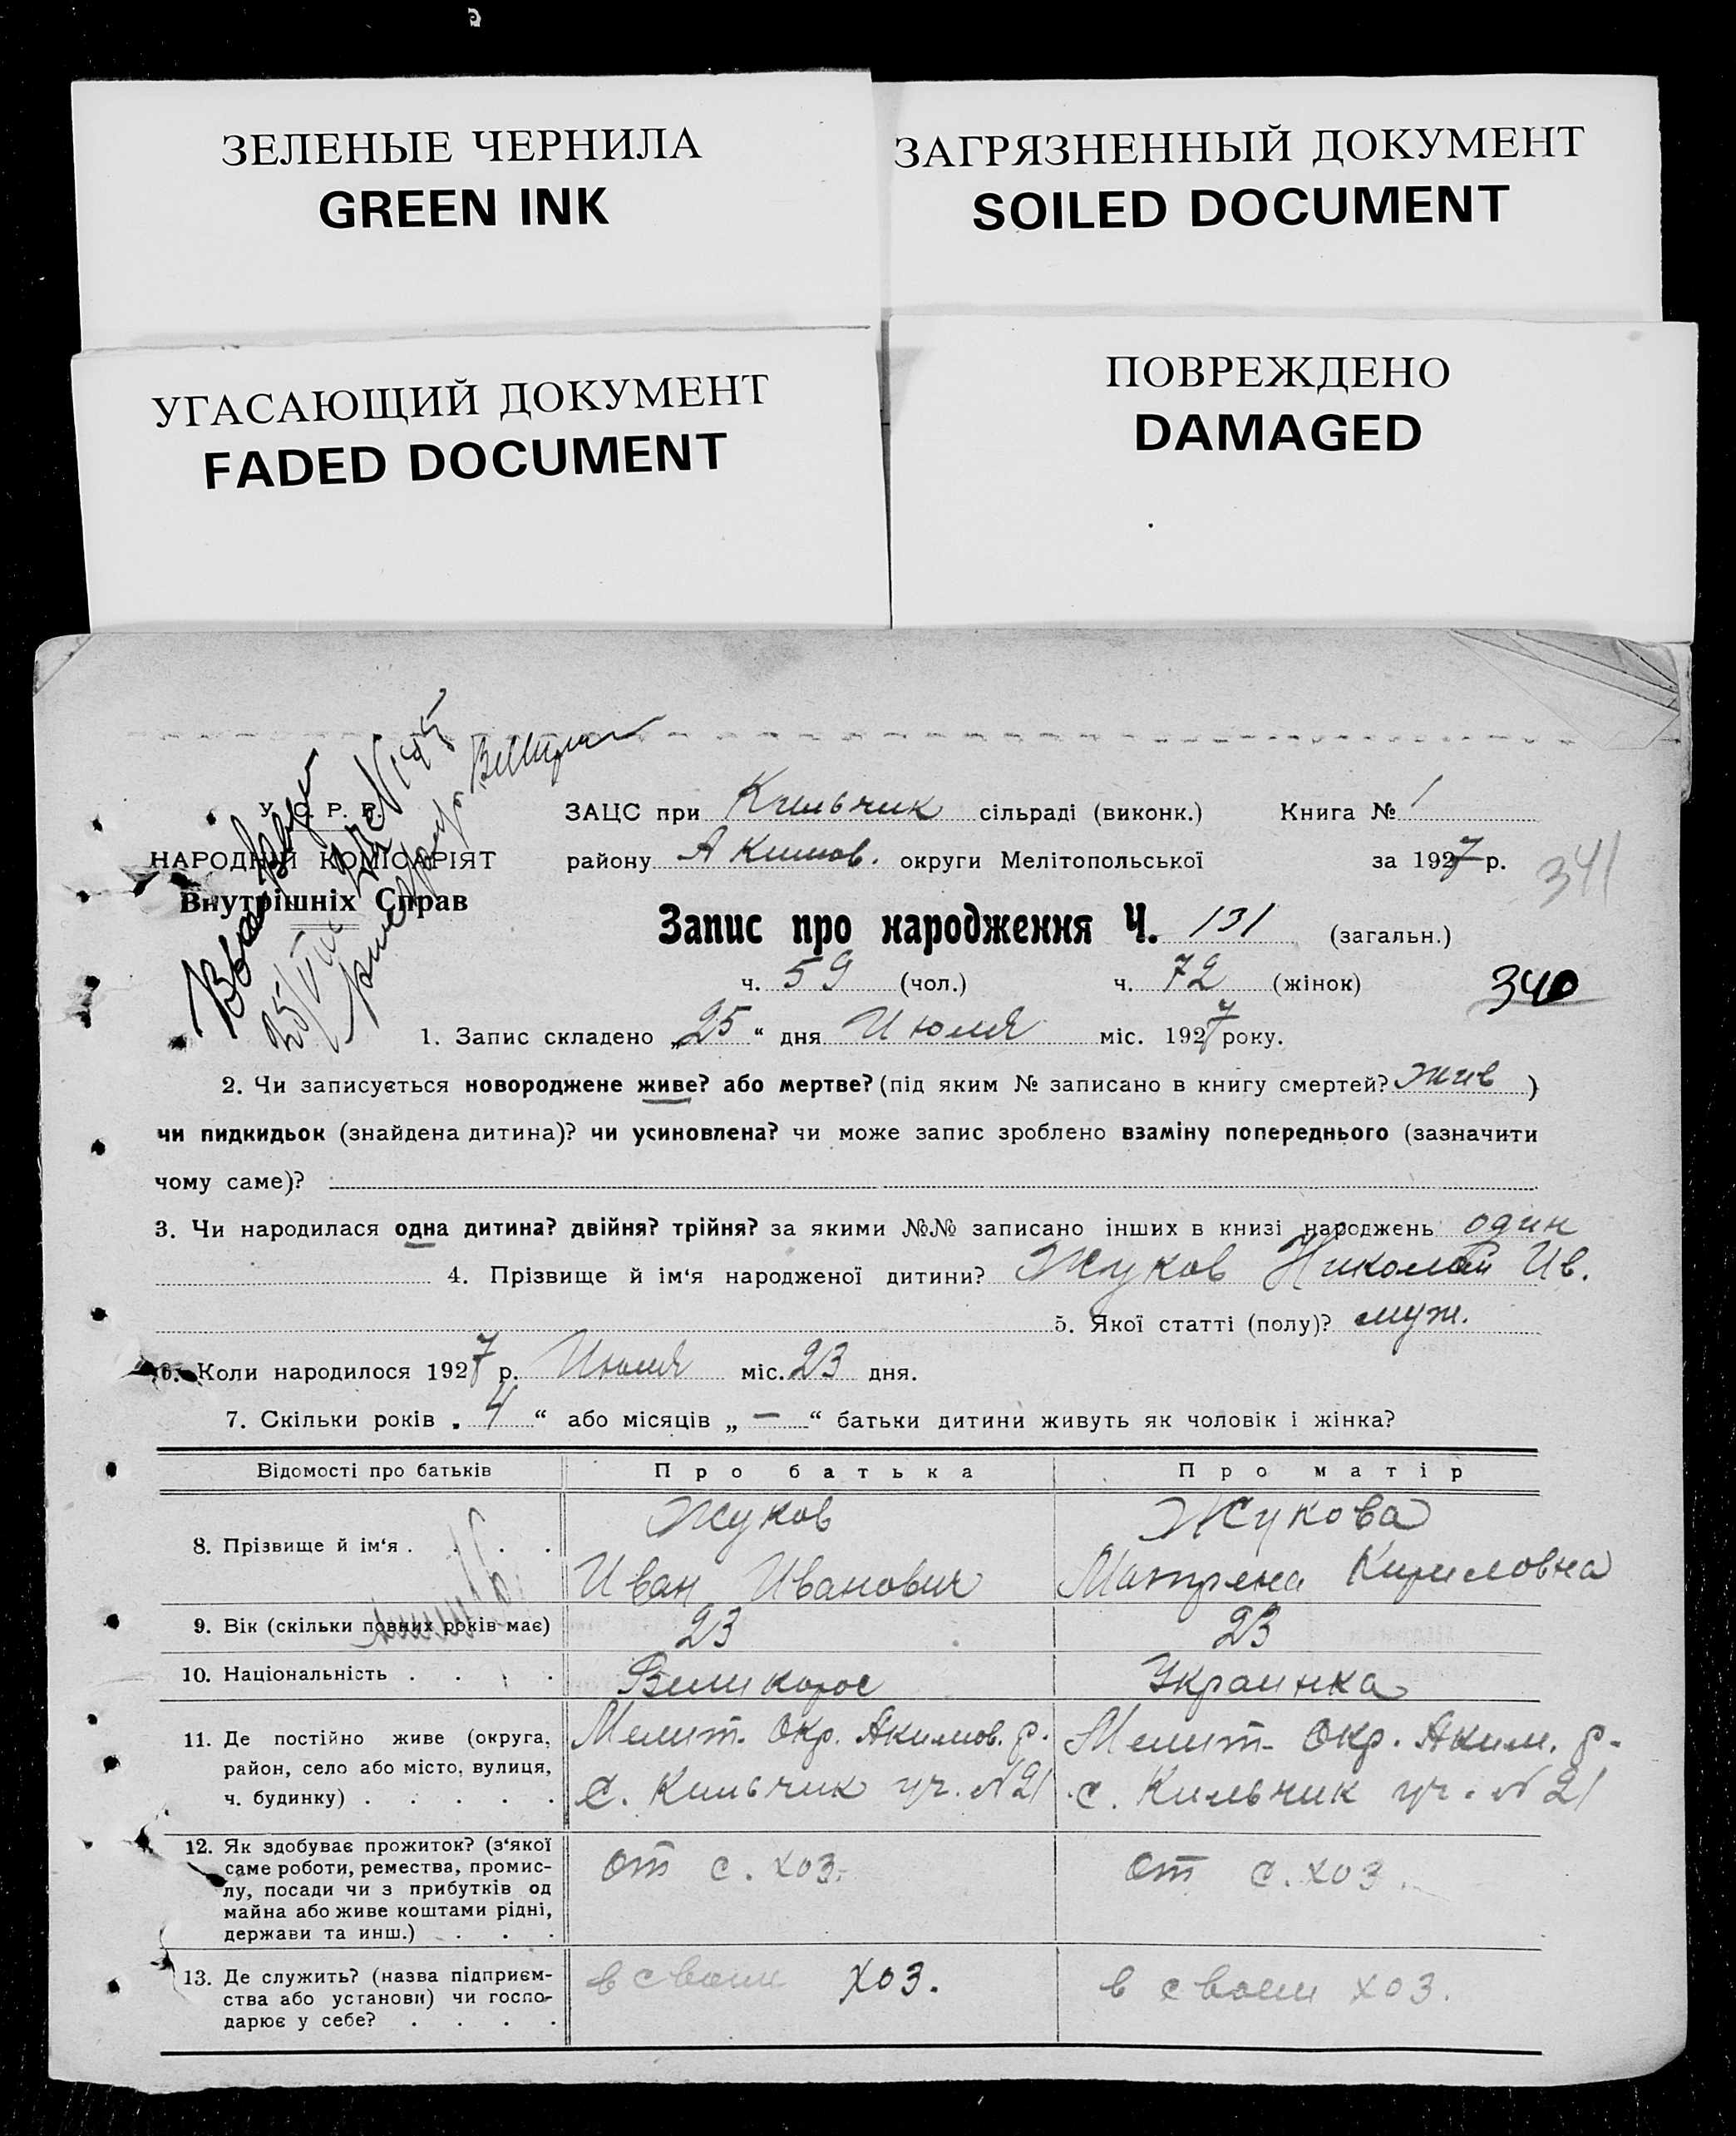 ЗЕЛЕНЫЕ ЧЕРНИЛА
GREEN INK
ЗАГРЯЗНЕННЫЙ ДОКУМЕНТ
SOILED DOCUMENT
УГАСАЮЩИЙ ДОКУМЕНТ
FADED DOCUMENT
ПОВРЕЖДЕНО
DAMAGED
У. С. Р. Р.
НАРОДНІЙ КОМІСАРІЯТ
Внутрішніх Справ
ЗАЦС при Кильчик сільраді (виконк.) Книга № 1
району Акимов. округи Мелітопольської за 1927 р.
341
Запис про народження Ч. 131 (загальн.)
ч. 59 (чол.) ч. 72 (жінок)
340
1. Запис складено „25“ дня Июля міс. 1927 року.
2. Чи записується новороджене живе? або мертве? (під яким № записано в книгу смертей? жив)
чи пидкидьок (знайдена дитина)? чи усиновлена? чи може запис зроблено взаміну попереднього (зазначити
чому саме)?
3. Чи народилася одна дитина? двійня? трійня? за якими №№ записано інших в книзі народжень один
4. Прізвище й ім‘я народженої дитини? Жуков Николай Ив.
5. Якої статті (полу)? муж.
6. Коли народилося 1927 р. Июля міс. 23 дня.
7. Скільки років „4“ або місяців „—“ батьки дитини живуть як чоловік і жінка?
Відомості про батьків Про батька Про матір
8. Прізвище й ім‘я . . . .
Жуков
Иван Иванович
Жукова
Матрена Кириловна
9. Вік (скільки повних років має) 23 23
10. Національність . . . . Великорос Украинка
11. Де постійно живе (округа,
район, село або місто, вулиця,
ч. будинку) . . . . .
Мелит. Окр. Акимов. р.
с. Кильчик уч. №21
Мелит. Окр. Аким. р.
с. Кильчик уч. №21
12. Як здобуває прожиток? (з‘якої
саме роботи, ремества, промис-
лу, посади чи з прибутків од
майна або живе коштами рідні,
держави та инш.) . . .
от с. хоз.
от с. хоз.
13. Де служить? (назва підприєм-
ства або установи) чи госпо-
дарює у себе? . . . .
в своем хоз.
в своем хоз.